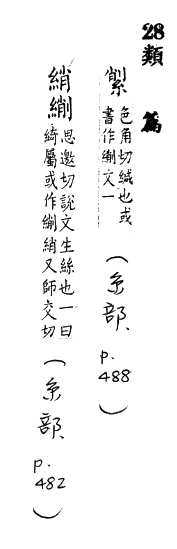 28類篇
䌂 色角切緘也或
書作綃文一
(糸部 p. 488)
綃䌂 思邀切說文生絲也一曰
綺屬或作䌂綃又師交切
(糸部 p. 482)